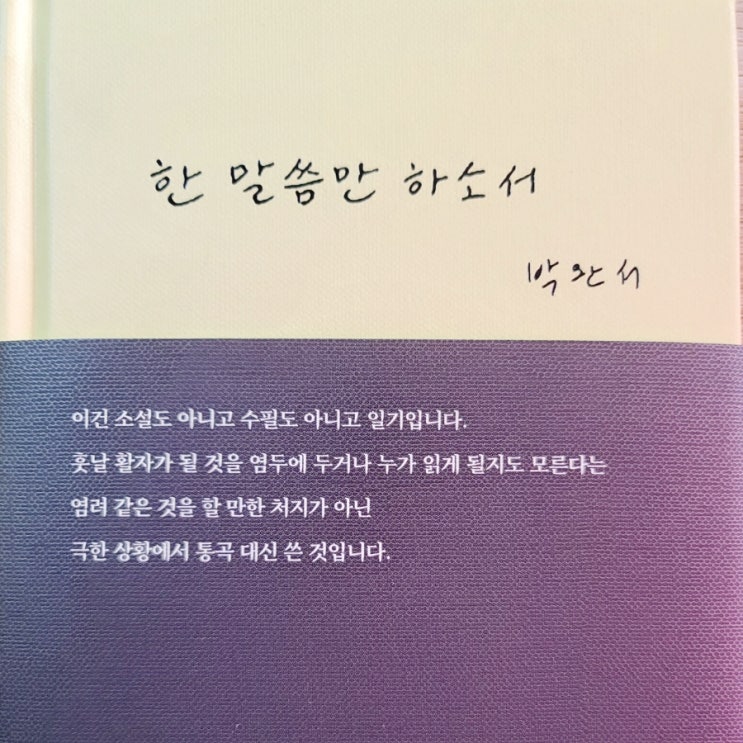 한 말씀만 하소서
박완서
이건 소설도 아니고 수필도 아니고 일기입니다.
훗날 활자가 될 것을 염두에 두거나 누가 읽게 될지도 모른다는
염려 같은 것을 할 만한 처지가 아닌
극한 상황에서 통곡 대신 쓴 것입니다.